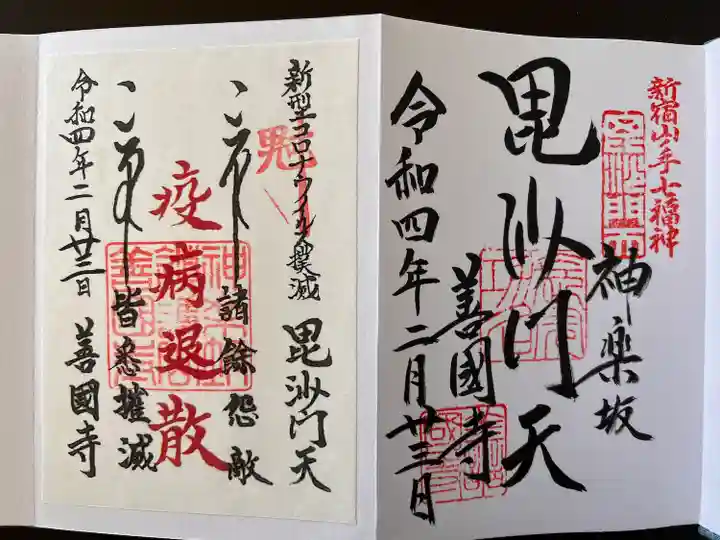 新宿山ノ手七福神
神楽坂
毘沙門天
善國寺
令和四年二月廿三日
新型コロナウイルス撲滅
毘沙門天
諸餘怨敵
疫病退散
皆悉摧滅
令和四年二月廿三日
善國寺